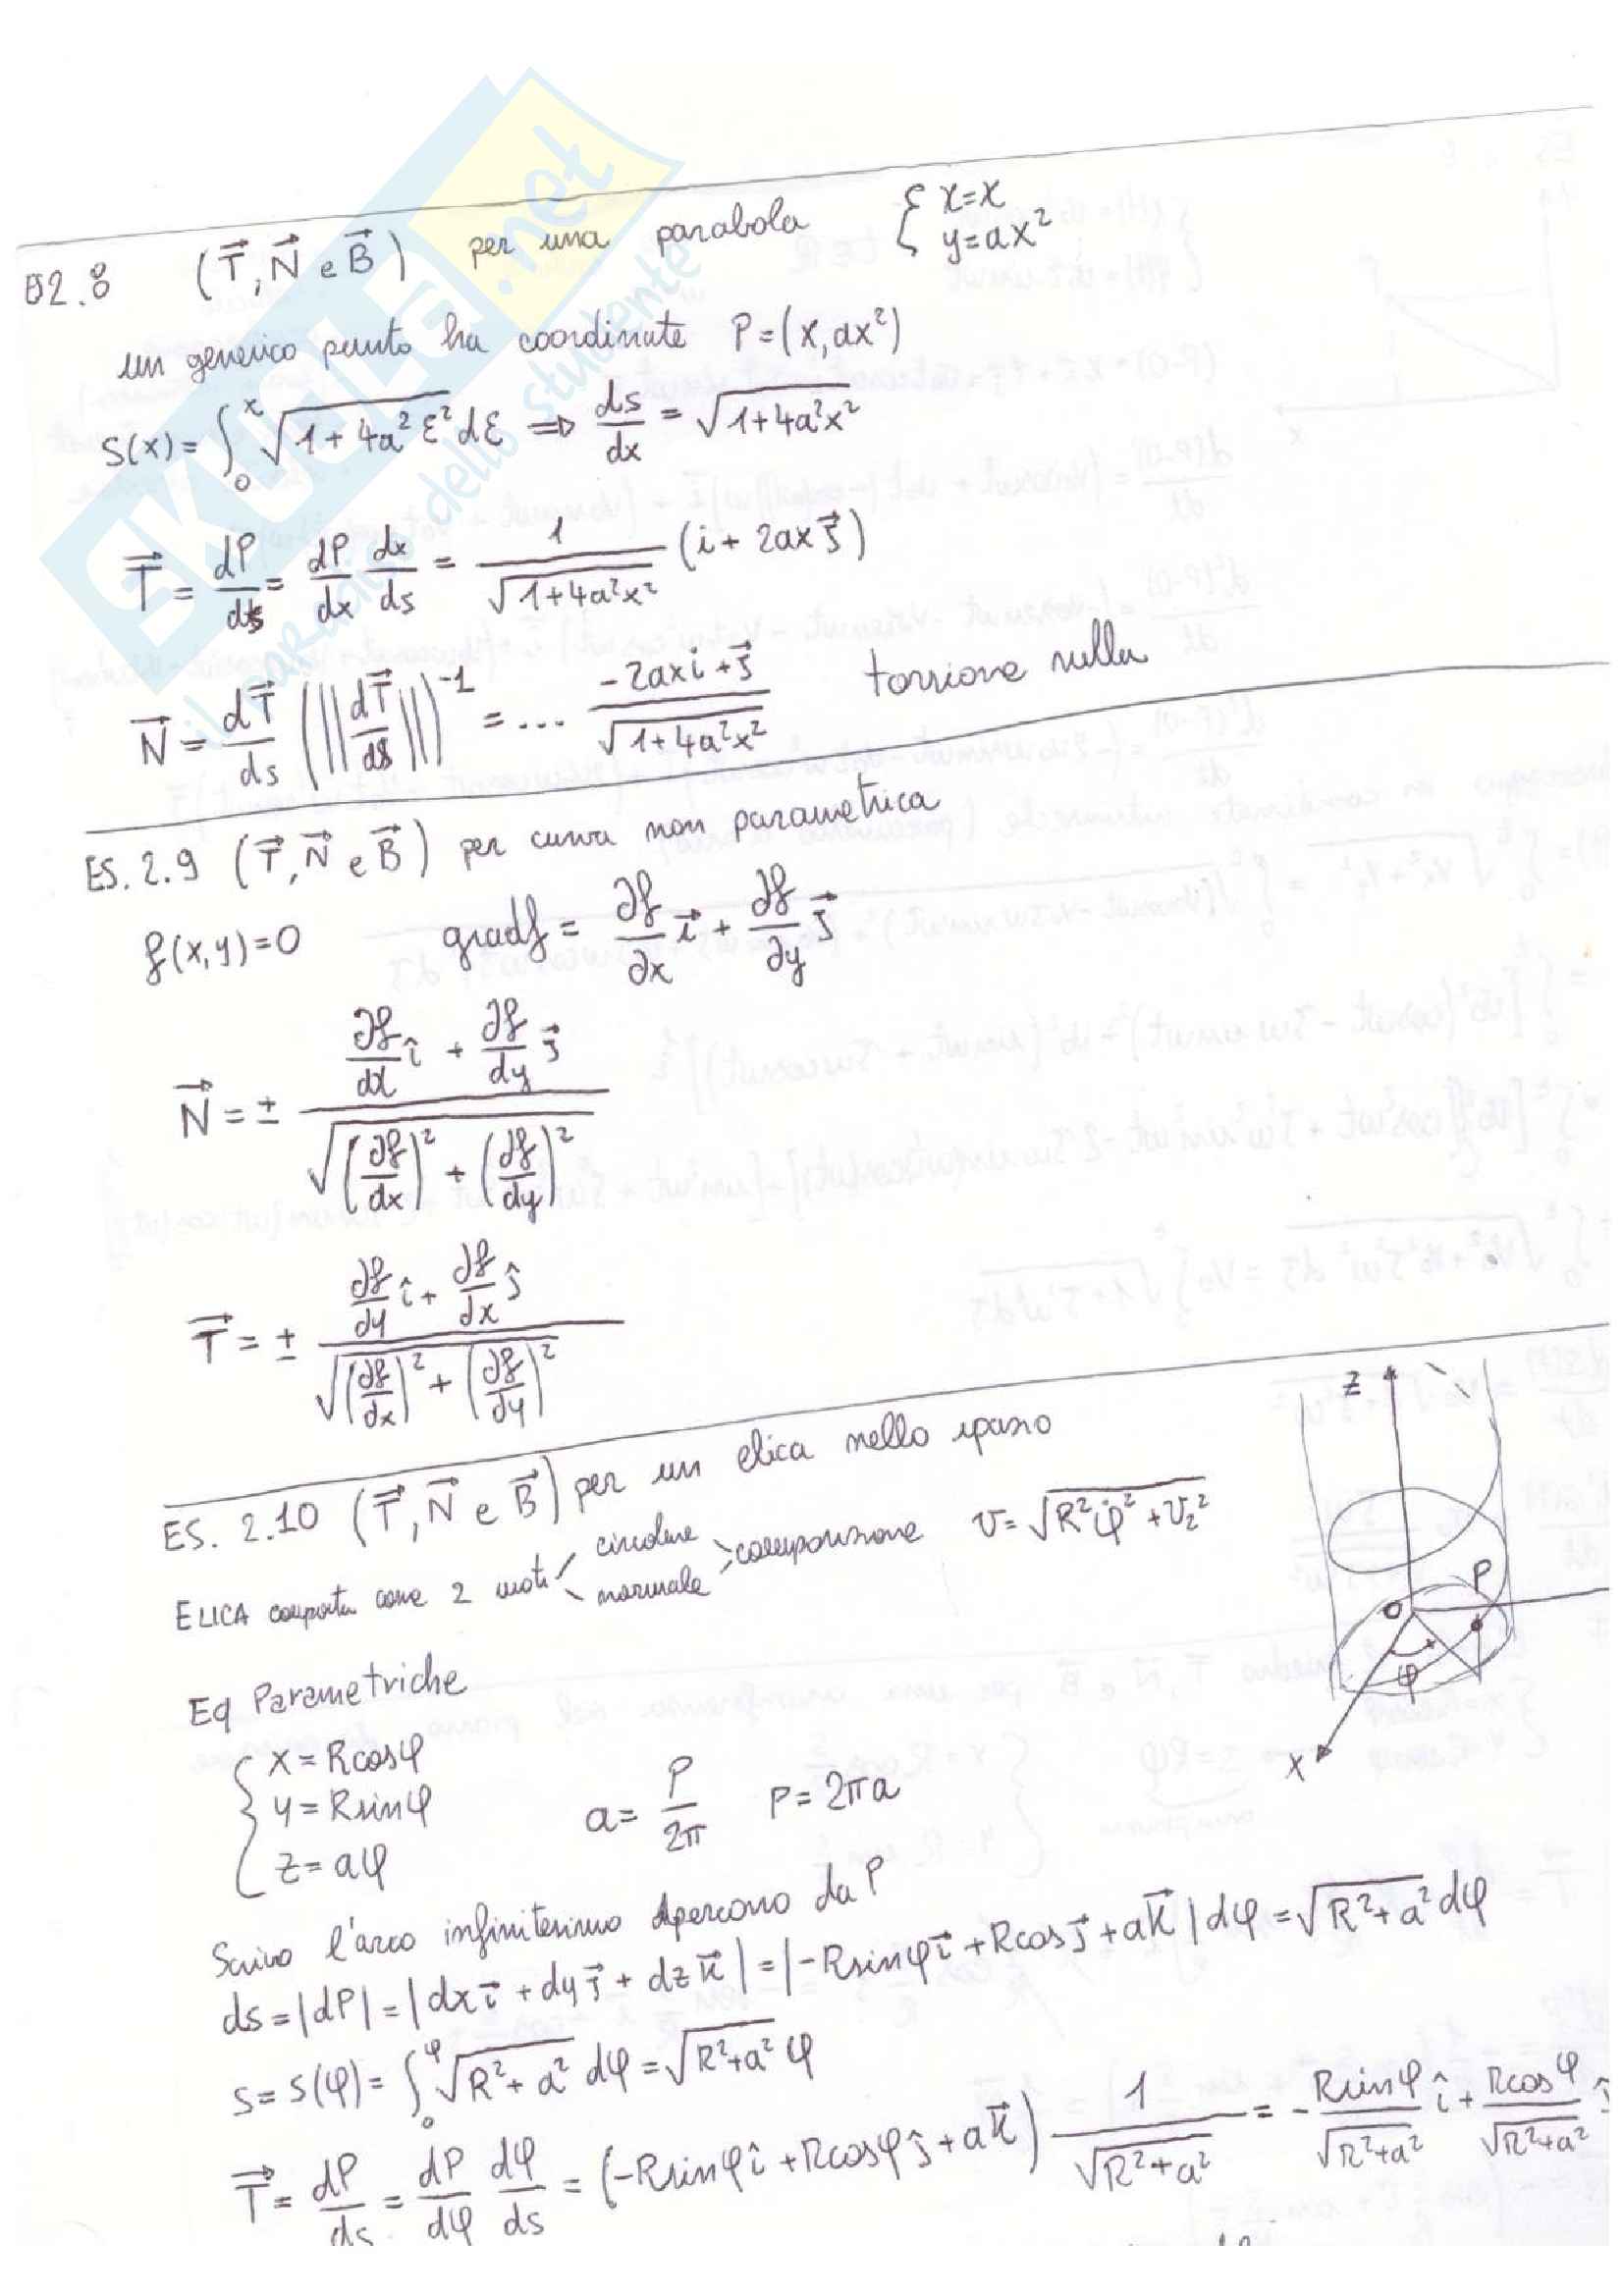 SKUOLA.net
il paradiso dello studente
02.8 (T⃗, N⃗ e B⃗) per una parabola { x=x
y=ax²
un generico punto ha coordinate P=(x, ax²)
S(x)=∫₀ˣ √(1+4a²ε²) dε ⇒ ds/dx = √(1+4a²x²)
T⃗ = dP/ds = dP/dx dx/ds = 1/√(1+4a²x²) (i + 2ax j⃗)
N⃗ = dT⃗/ds (||dT⃗/ds||)⁻¹ = ... (-2axi + j⃗)/√(1+4a²x²) torsione nulla
ES. 2.9 (T⃗, N⃗ e B⃗) per curva non parametrica
f(x,y)=0 gradf = ∂f/∂x i⃗ + ∂f/∂y j⃗
N⃗ = ± (∂f/dx î + ∂f/dy j⃗)/√((∂f/dx)² + (∂f/dy)²)
T⃗ = ± (∂f/dy î + ∂f/dx ĵ)/√((∂f/dx)² + (∂f/dy)²)
ES. 2.10 (T⃗, N⃗ e B⃗) per un elica nello spazio
ELICA composta come 2 moti < circolare normale > composizione v = √(R²φ̇² + v_z²)
Z
P
O
φ
X
Eq Parametriche
{ x = Rcosφ
y = Rsinφ
z = aφ
a = P/2π P = 2πa
Scrivo l'arco infinitesimo percorso da P
ds = |dP| = |dx i⃗ + dy j⃗ + dz k⃗| = |-Rsinφ i⃗ + Rcos j⃗ + a k⃗| dφ = √(R²+a²) dφ
s = s(φ) = ∫₀^φ √(R²+a²) dφ = √(R²+a²) φ
T⃗ = dP/ds = dP/dφ dφ/ds = (-Rsinφ î + Rcosφ ĵ + a k⃗) 1/√(R²+a²) = - Rsinφ/√(R²+a²) î + Rcosφ/√(R²+a²) ĵ